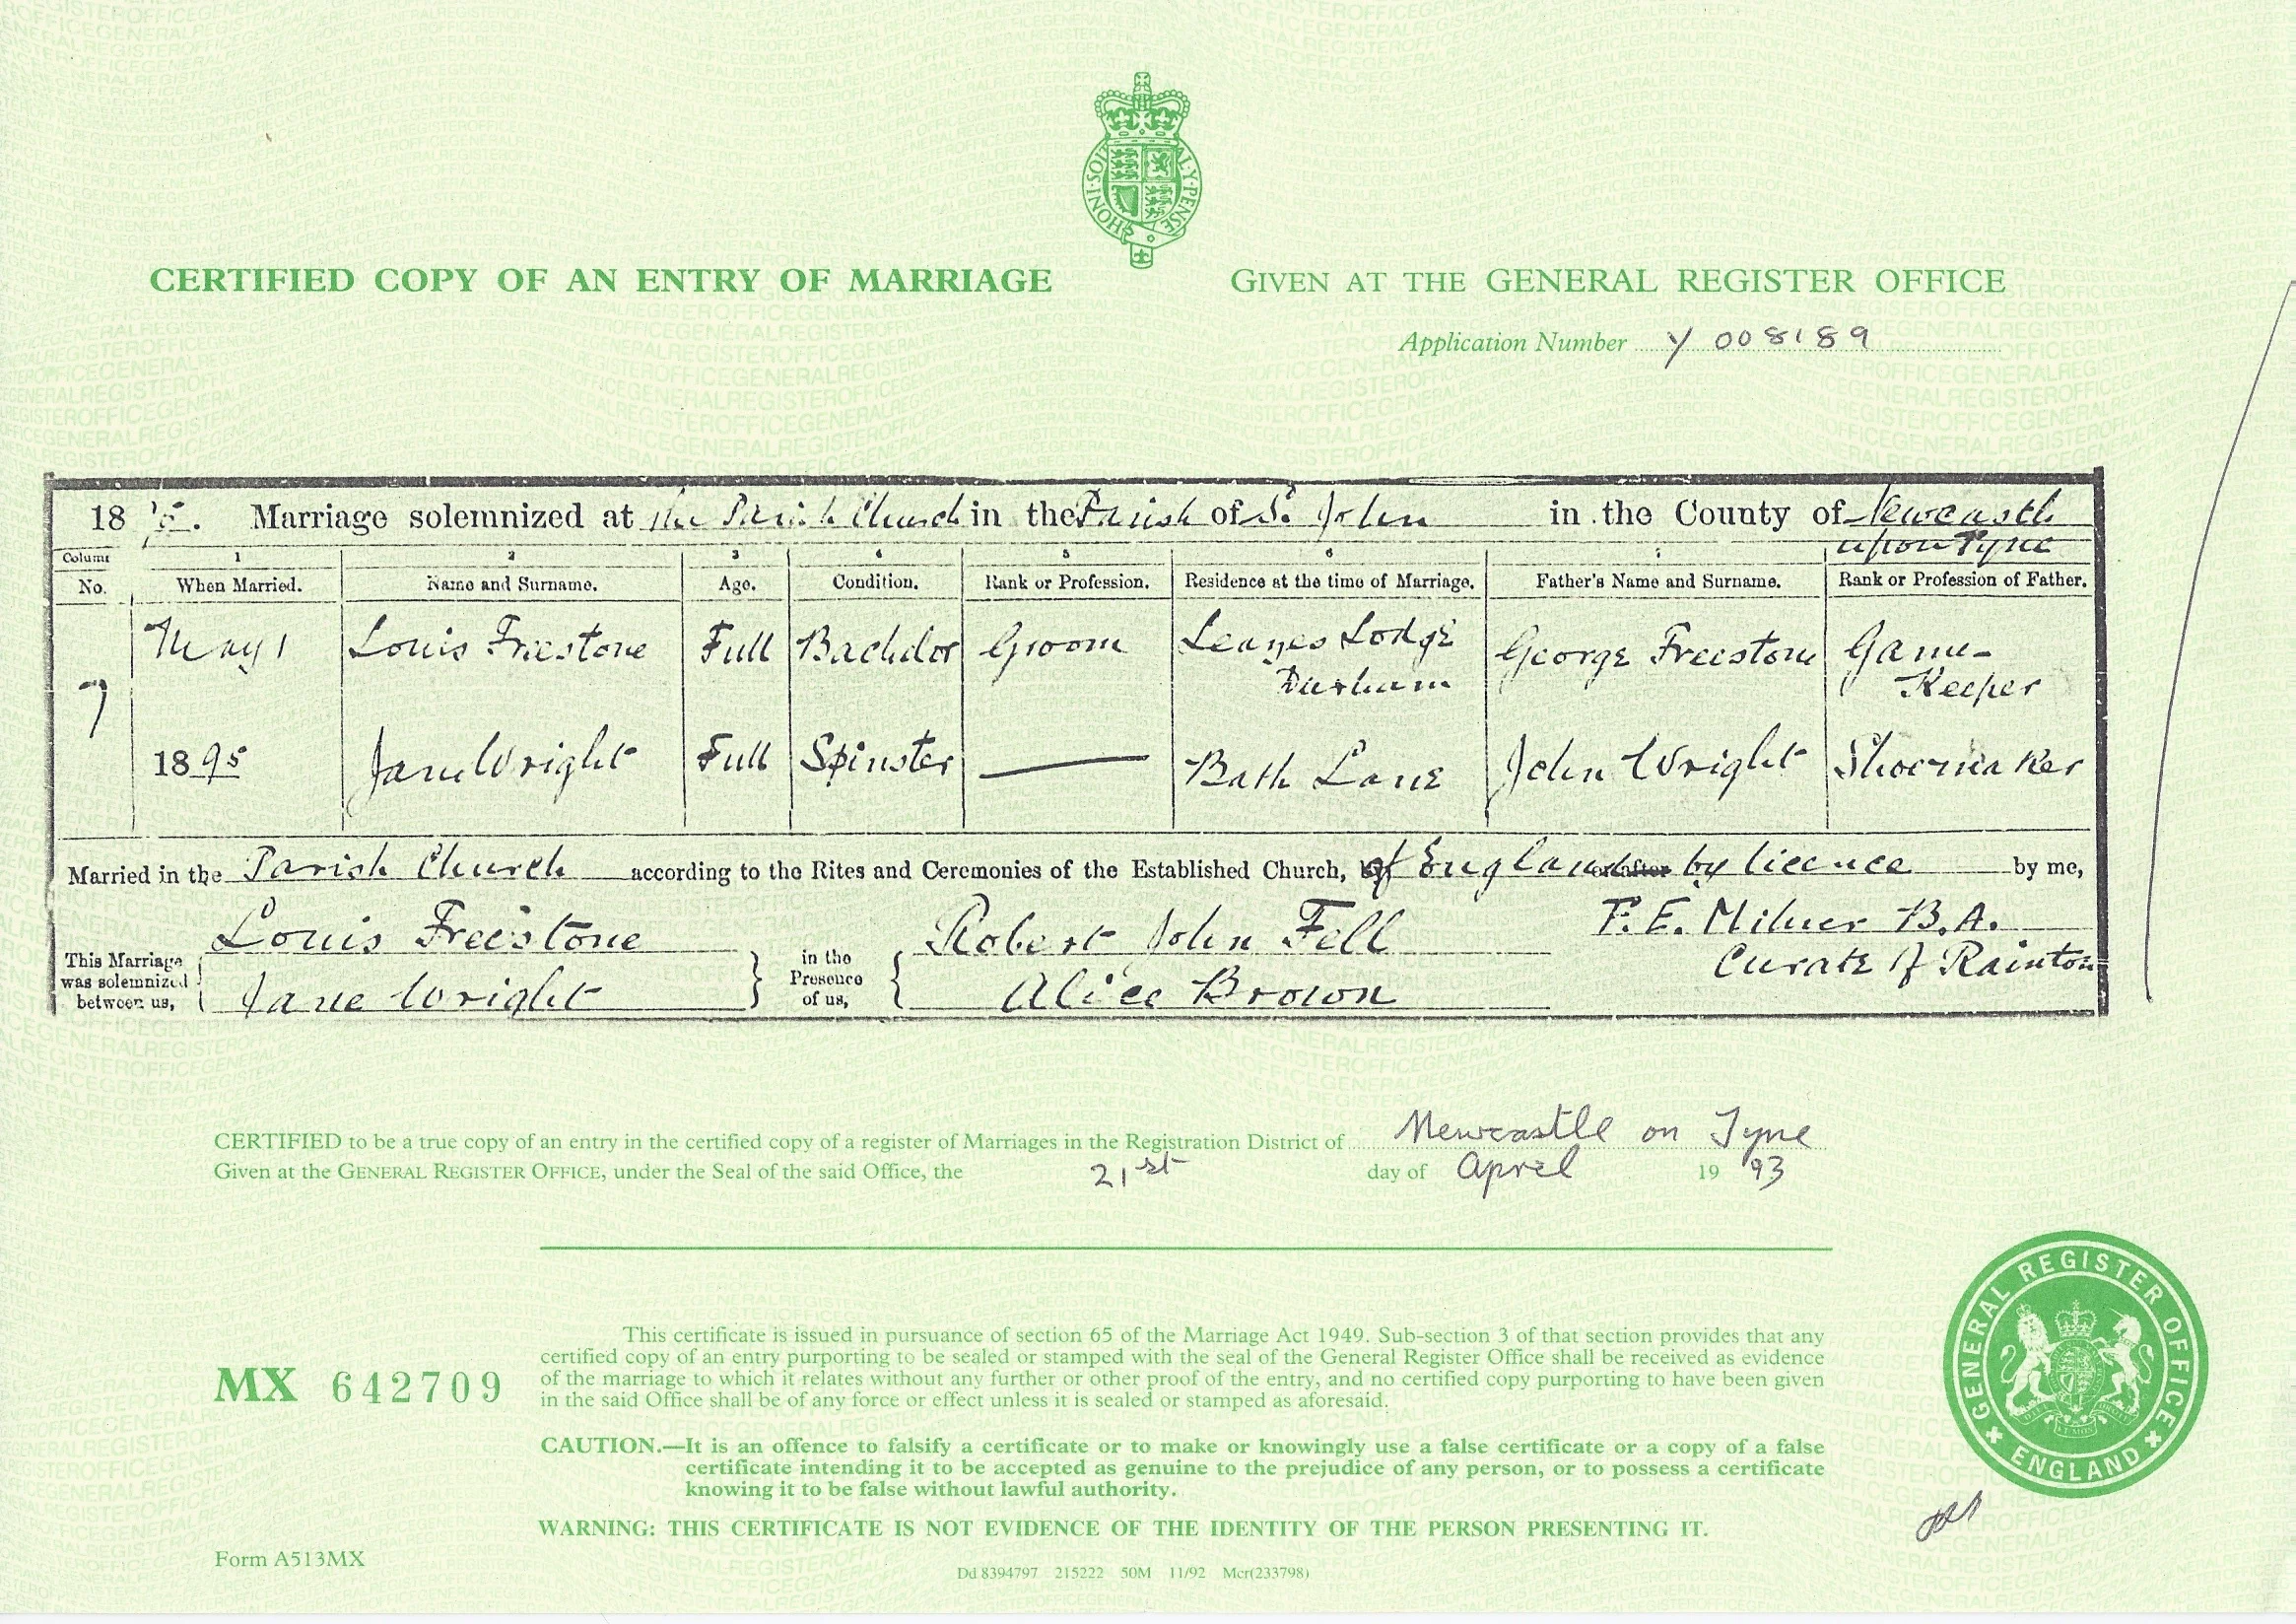 HONI·SOIT AL·Y·PENSE
CERTIFIED COPY OF AN ENTRY OF MARRIAGE
GIVEN AT THE GENERAL REGISTER OFFICE
Application Number Y 008189
18 Marriage solemnized at the Parish Church in the Parish of St. John in the County of Newcastle
upon Tyne
Column 1 2 3 4 5 6 7
No. When Married. Name and Surname. Age. Condition. Rank or Profession. Residence at the time of Marriage. Father's Name and Surname. Rank or Profession of Father.
7 May 1 Louis Freestone Full Bachelor Groom Leazes Lodge Durham George Freestone Game-Keeper
1895 Jane Wright Full Spinster — Bath Lane John Wright Shoemaker
Married in the Parish Church according to the Rites and Ceremonies of the Established Church, of England or after by licence by me,
This Marriage was solemnized between us, Louis Freestone in the Presence of us, Robert John Fell F. E. Milner B.A.
Jane Wright Alice Brown Curate of Rainton
CERTIFIED to be a true copy of an entry in the certified copy of a register of Marriages in the Registration District of Newcastle on Tyne
Given at the GENERAL REGISTER OFFICE, under the Seal of the said Office, the 21st day of April 1993
This certificate is issued in pursuance of section 65 of the Marriage Act 1949. Sub-section 3 of that section provides that any
certified copy of an entry purporting to be sealed or stamped with the seal of the General Register Office shall be received as evidence
of the marriage to which it relates without any further or other proof of the entry, and no certified copy purporting to have been given
in the said Office shall be of any force or effect unless it is sealed or stamped as aforesaid.
MX 642709
CAUTION.—It is an offence to falsify a certificate or to make or knowingly use a false certificate or a copy of a false
certificate intending it to be accepted as genuine to the prejudice of any person, or to possess a certificate
knowing it to be false without lawful authority.
WARNING: THIS CERTIFICATE IS NOT EVIDENCE OF THE IDENTITY OF THE PERSON PRESENTING IT.
GENERAL REGISTER OFFICE
ENGLAND
Form A513MX
Dd 8394797 215222 50M 11/92 Mcr(233798)